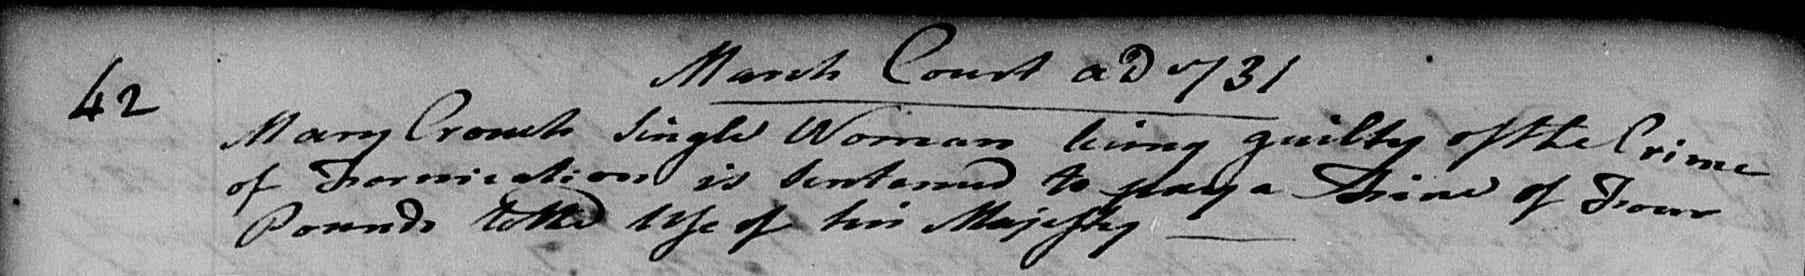 March Court aD 1731
42
Mary Crouch Single Woman being guilty of the Crime
of Fornication is Sentanced to pay a Fine of Four
Pounds to the Use of his Majesty